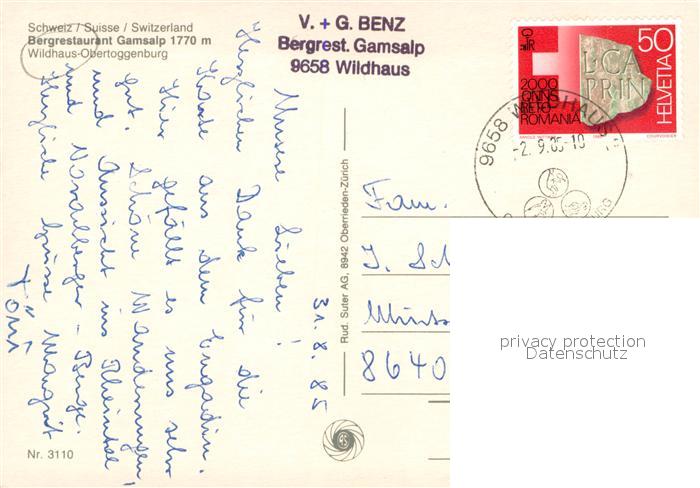 Schweiz / Suisse / Switzerland
Bergrestaurant Gamsalp 1770 m
Wildhaus-Obertoggenburg
V. + G. BENZ
Bergrest. Gamsalp
9658 Wildhaus
50
HELVETIA
L·CA
PRIN
2000
ONNS
RETO
ROMANIA
9658 WILDHAUS
-2. 9. 85-10
31. 8. 85
Meine Lieben!
Herzlichen Dank für die
Karte aus dem Engadin.
Hier gefällt es uns sehr
gut. Schöne Wanderungen
und Aussicht ins Rheintal
und Voralberger-Berge.
Herzliche Grüsse Margrit
Töni
Rud. Suter AG, 8942 Oberrieden-Zürich
Fam.
J. Sch
8640
Nr. 3110
privacy protection
Datenschutz